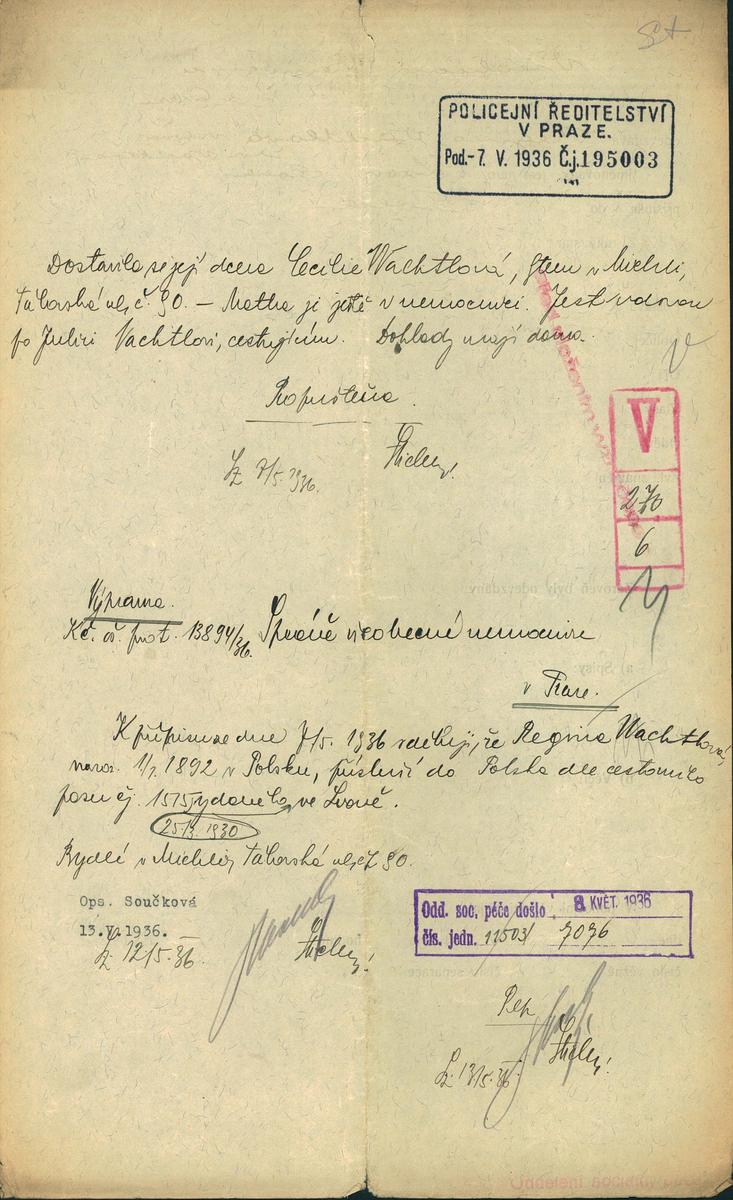 POLICEJNÍ ŘEDITELSTVÍ
V PRAZE.
Pod.-7. V. 1936 Č.j.195003
Dostavila se její dcera Cecilie Wachtlová, v Michli,
Táborská ul. č. 90. – Matka je ještě v nemocnici. Jest vdovou
po Juliu Vachtlovi, cestujícím. Doklady mají doma.
Propuštěna.
7/5. 1936.
V
270
6
Výprava.
K č. prot. 13894/36. Správě všeobecné nemocnice
v Praze.
K přípisu ze dne 7/5. 1936 sděluji, že Regina Wachtlová,
naroz. 1/7. 1892 v Polsku, přísluší do Polska dle cestovního
pasu čj. 1515 vydaného ve Lvově.
1930
Bydlí v Michli, Táborská ul. č. 90.
Ops. Součková
13.V.1936.
12/5. 36.
Odd. soc. péče došlo 8. KVĚT. 1936
čís. jedn. 11503/ 7096
13/5. 36.